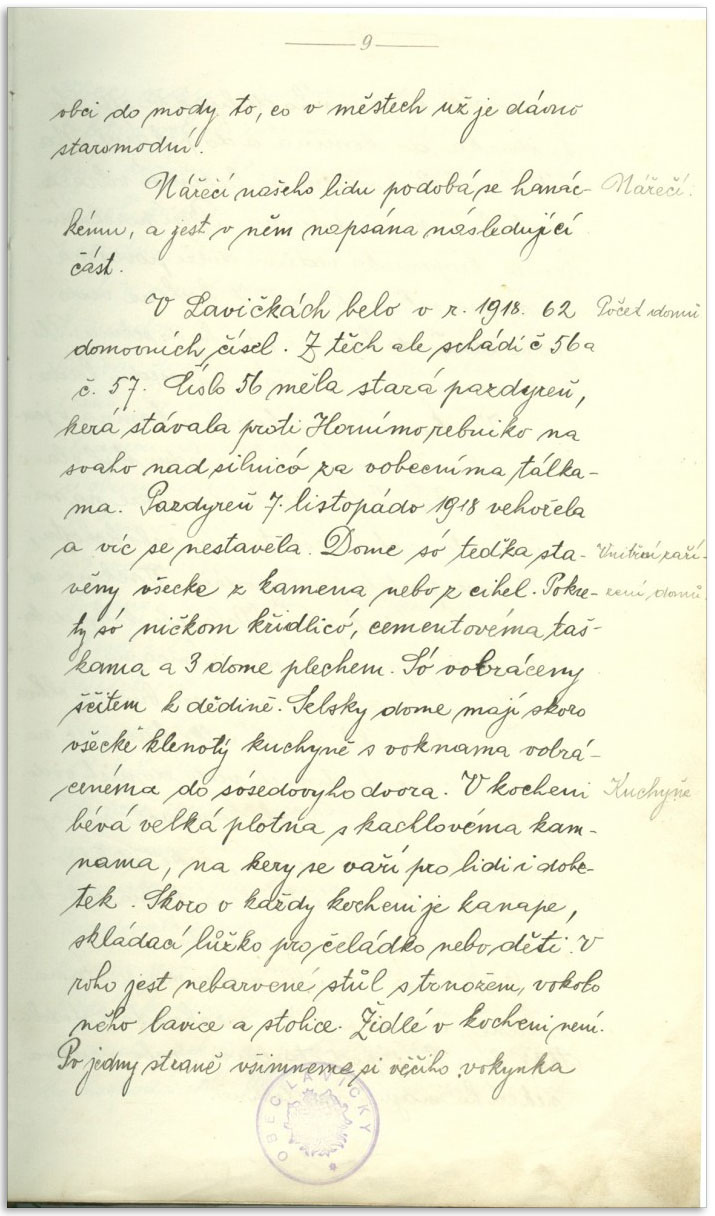 9
obci do mody to, co v městech už je dávno
staromodní.
Nářečí našeho lidu podobá se hanác- Nářečí.
kému, a jest v něm napsána následující
část.
V Lavičkách belo v r. 1918. 62 Počet domů
domovních čísel. Z těch ale schádí č 56 a
č. 57. Číslo 56 měla stará pazdyreň,
kerá stávala proti Hornímo rebniko na
svaho nad silnicó za vobecníma tálka-
ma. Pazdyreň 7. listopádo 1918 vehořela
a víc se nestavěla. Dome só teďka sta- Vnitřní zaří-
věny všecke z kamena nebo z cihel. Pokre- zení domů.
ty só ničkom křidlicó, cementovéma taš-
kama a 3 dome plechem. Só vobráceny
ščítem k dědině. Selsky dome mají skoro
všecké klenotý kuchyně s voknama vobrá-
cenéma do sósedovyho dvora. V kocheni Kuchyňe
bévá velká plotna s kachlovéma kam-
nama, na kery se vaří pro lidi i dobe-
tek. Skoro v každy kocheni je kanape,
skládací lůžko pro čeládko nebo děti. V
roho jest nebarvené stůl s trnožem, vokolo
něho lavice a stolice. Židlé v kocheni není.
Po jedny straně všimneme si věčího vokynka
OBEC LAVIČKY